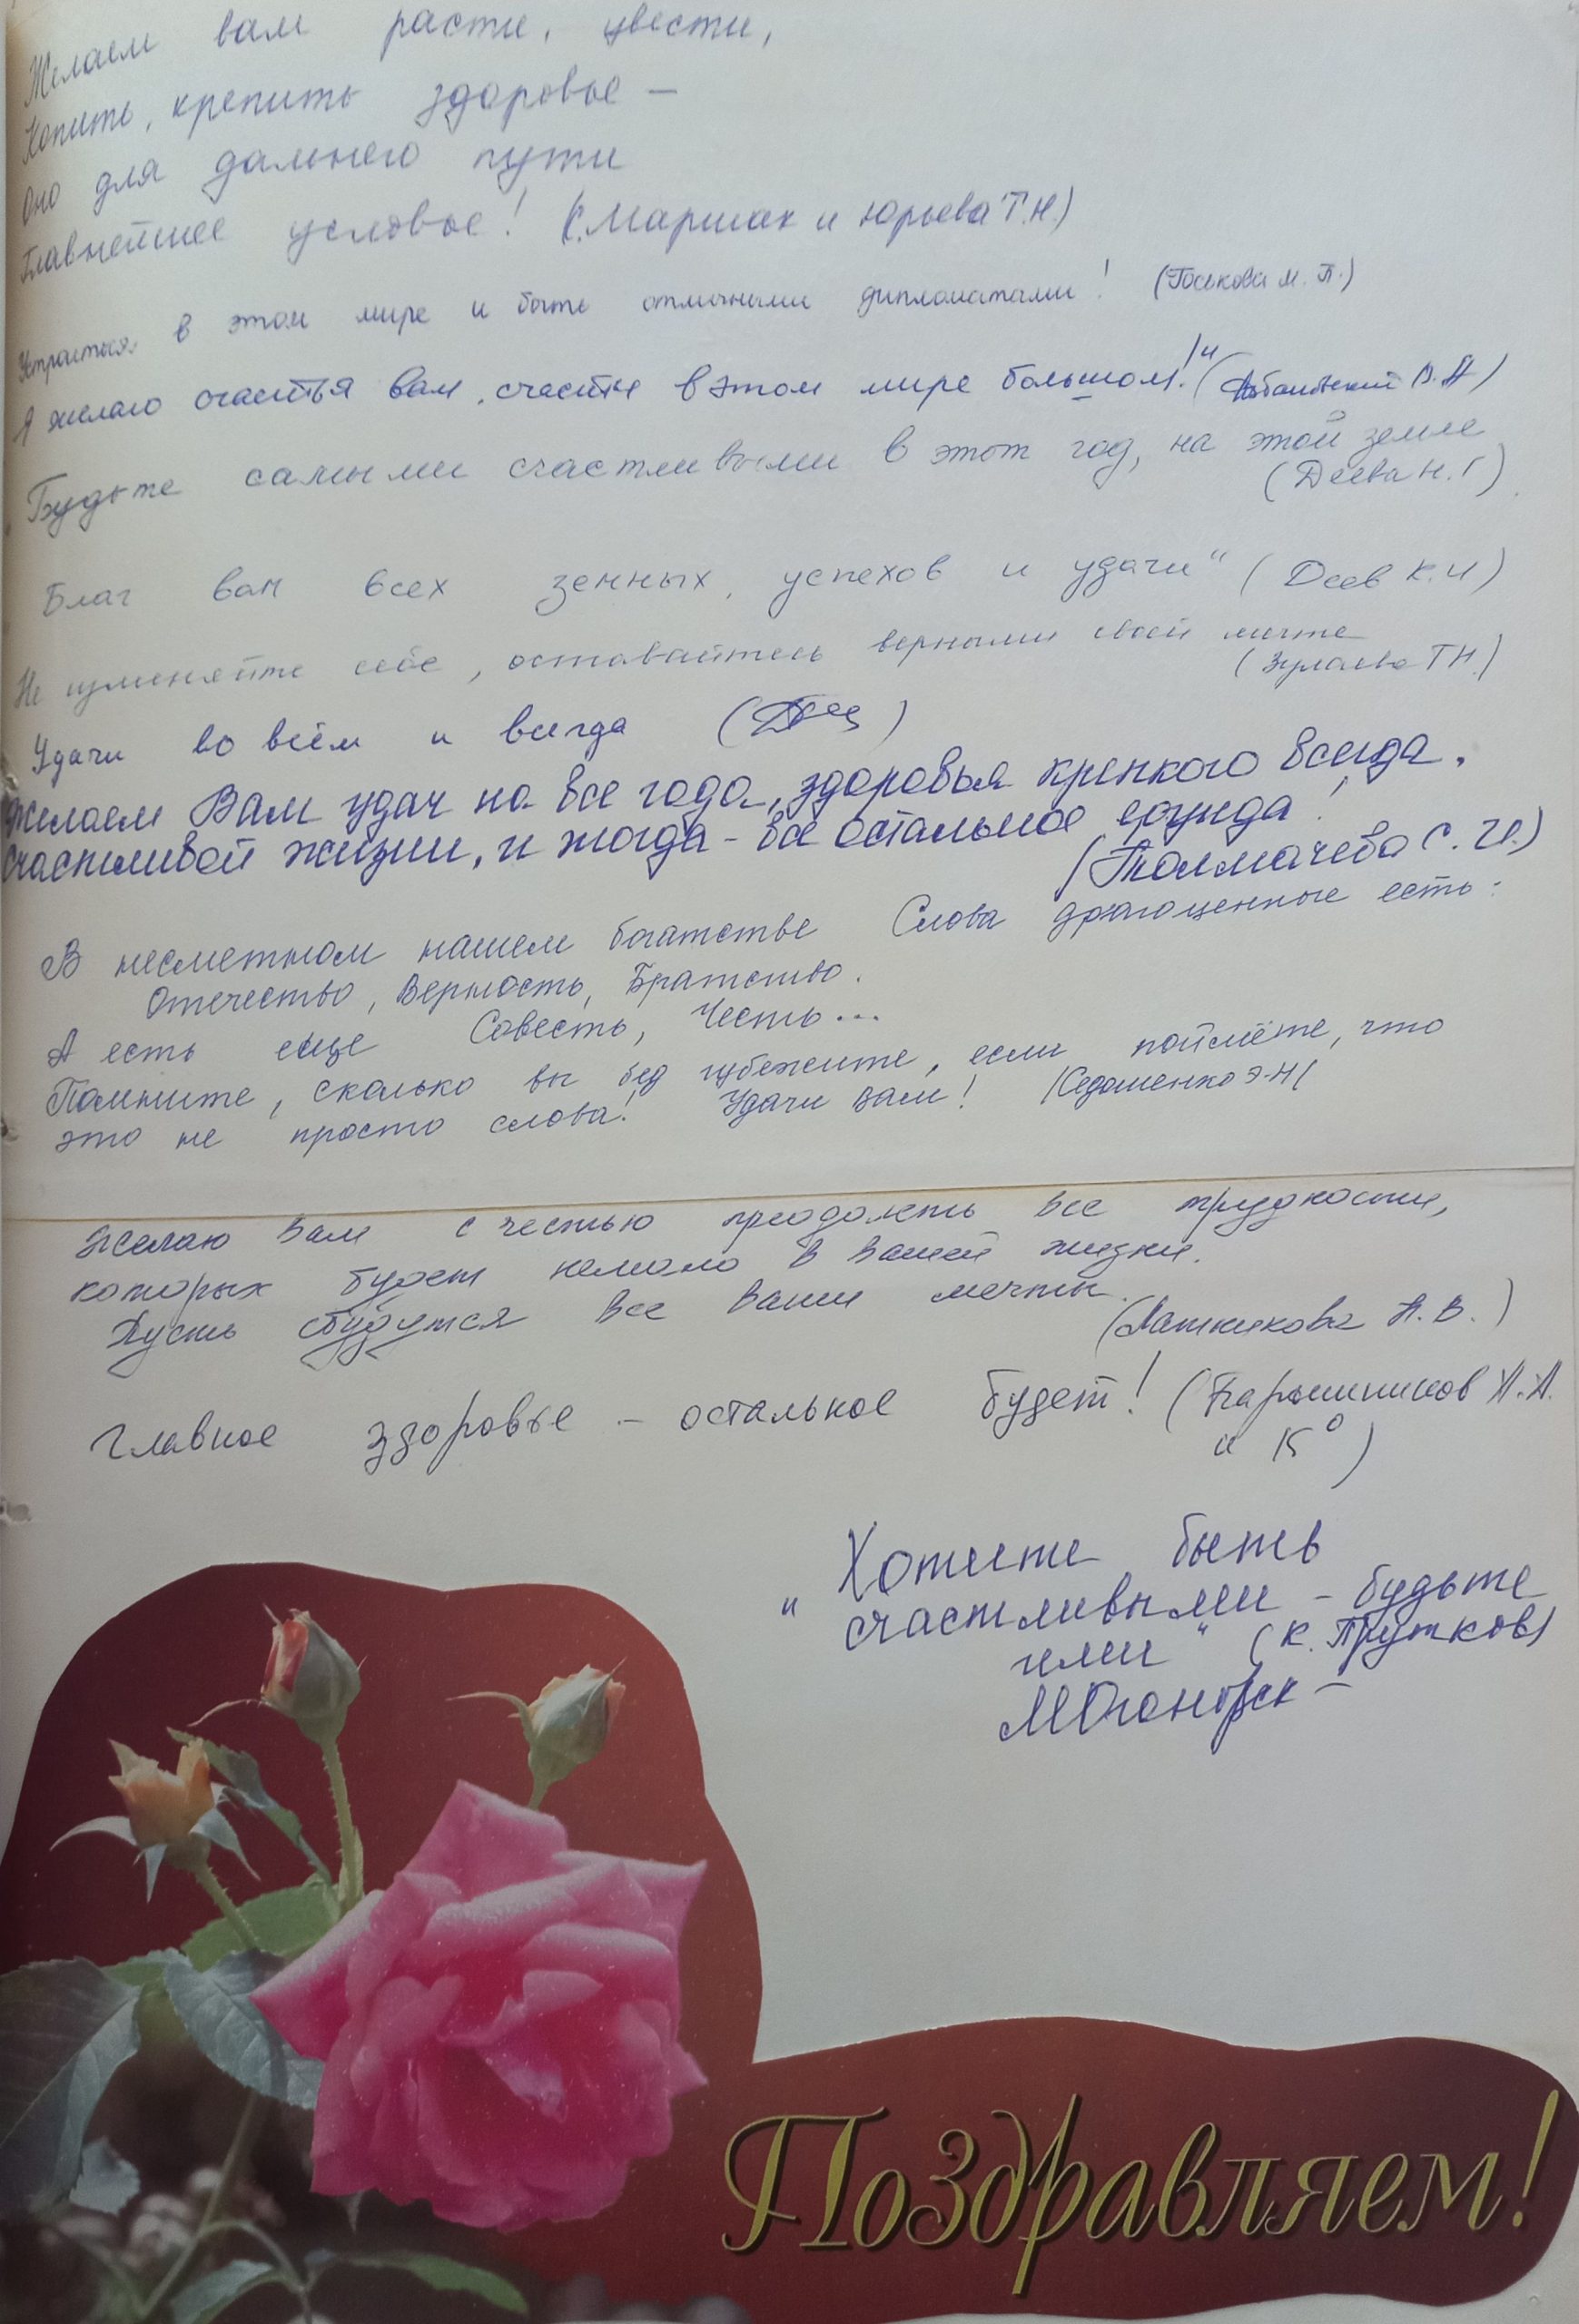 Желаем вам расти, цвести,
Копить, крепить здоровье –
Оно для дальнего пути
Главнейшее условье! (С. Маршак и Юрьева Т.Н.)
в этом мире и быть отличными дипломатами! (Госькова М. П.)
Я желаю счастья вам, счастья в этом мире большом!" В.А)
Будьте самыми счастливыми в этот год, на этой земле
(Деева Н. Г)
Благ вам всех земных, успехов и удачи" (Деев К.И)
Не изменяйте себе, оставайтесь верными своей мечте
(Зулаева Т Н.)
Удачи во всём и всегда
Желаем Вам удач на все года, здоровья крепкого всегда.
Счастливой жизни, и тогда – все остальное ерунда!
(Толмачева С. И.)
В несметном нашем богатстве Слова драгоценные есть:
Отечество, Верность, Братство.
А есть еще Совесть, Честь...
Помните, сколько вы бед избежите, если поймёте, что
это не просто слова! Удачи Вам! /Седошенко Э.Н/
Желаю Вам с честью преодолеть все трудности,
которых будет немало в вашей жизни.
Пусть сбудутся все Ваши мечты.
(Лашникова А. В.)
Главное здоровье – остальное будет! (Барышников А.А.
и К⁰)
" Хотите быть
счастливыми – будьте
ими" (К. Прутков)
Поздравляем!